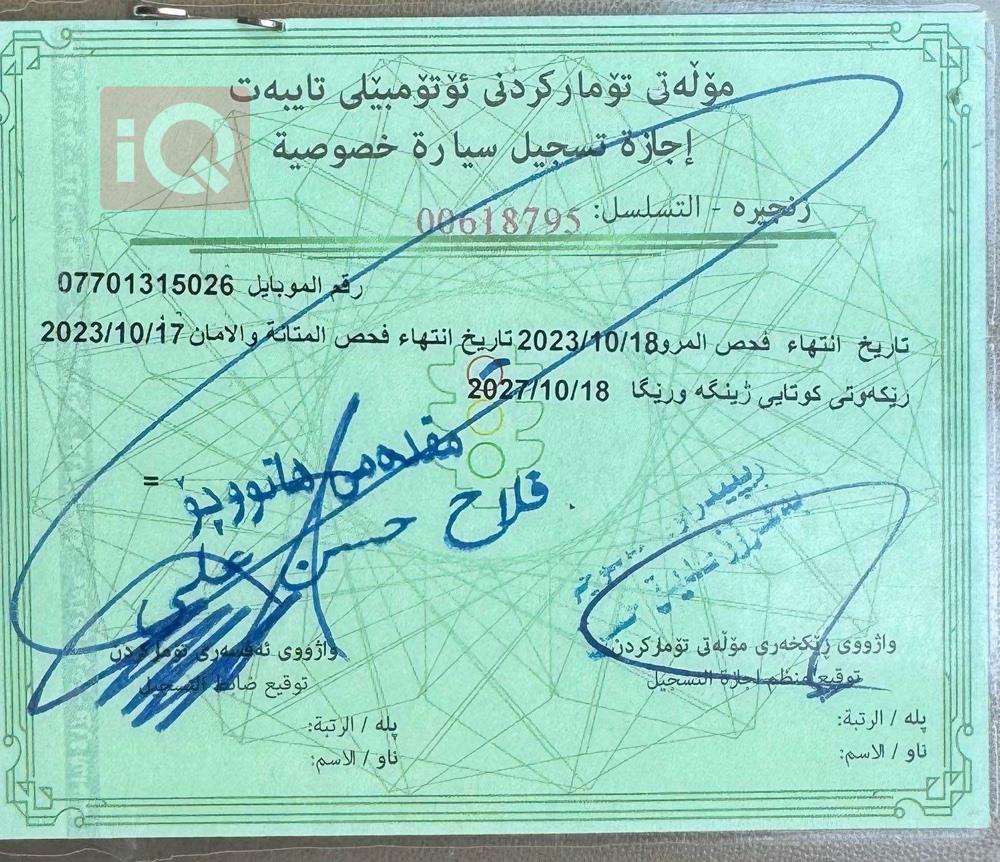 iQ
مۆڵەتی تۆمارکردنی ئۆتۆمبێلی تایبەت
إجازة تسجيل سيارة خصوصية
زنجیرە - التسلسل: 00618795
رقم الموبايل 07701315026
تاريخ انتهاء فحص المرو2023/10/18 تاريخ انتهاء فحص المتانة والامان 2023/10/17
رێکەوتی کوتایی ژینگە ورێگا 2027/10/18
=
فلاح حسن علي
واژووی رێکخەری مۆڵەتی تۆمارکردن
توقيع منظم اجازة التسجيل
پلە / الرتبة:
ناو / الاسم:
واژووی ئەفسەری تۆمارکردن
توقيع ضابط التسجيل
پلە / الرتبة:
ناو / الاسم: